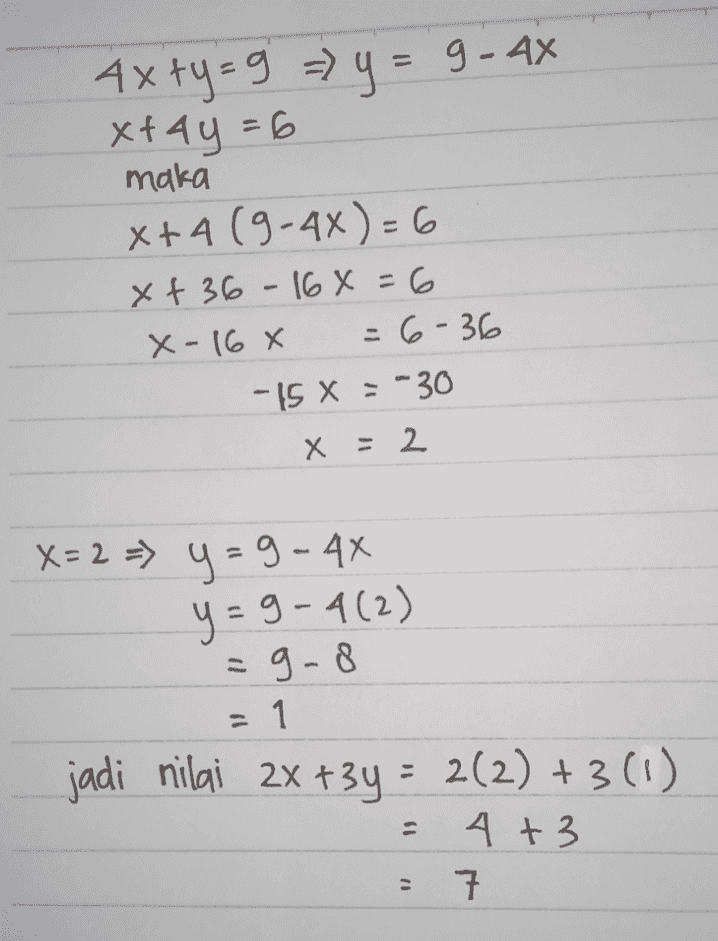 4x+y=9 ⇒ y = 9-4x
x+4y = 6
maka
x+4(9-4x) = 6
x+36-16x = 6
x-16x = 6-36
-15x = -30
x = 2
x=2 ⇒ y = 9-4x
y = 9-4(2)
= 9-8
= 1
jadi nilai 2x+3y = 2(2)+3(1)
= 4+3
= 7